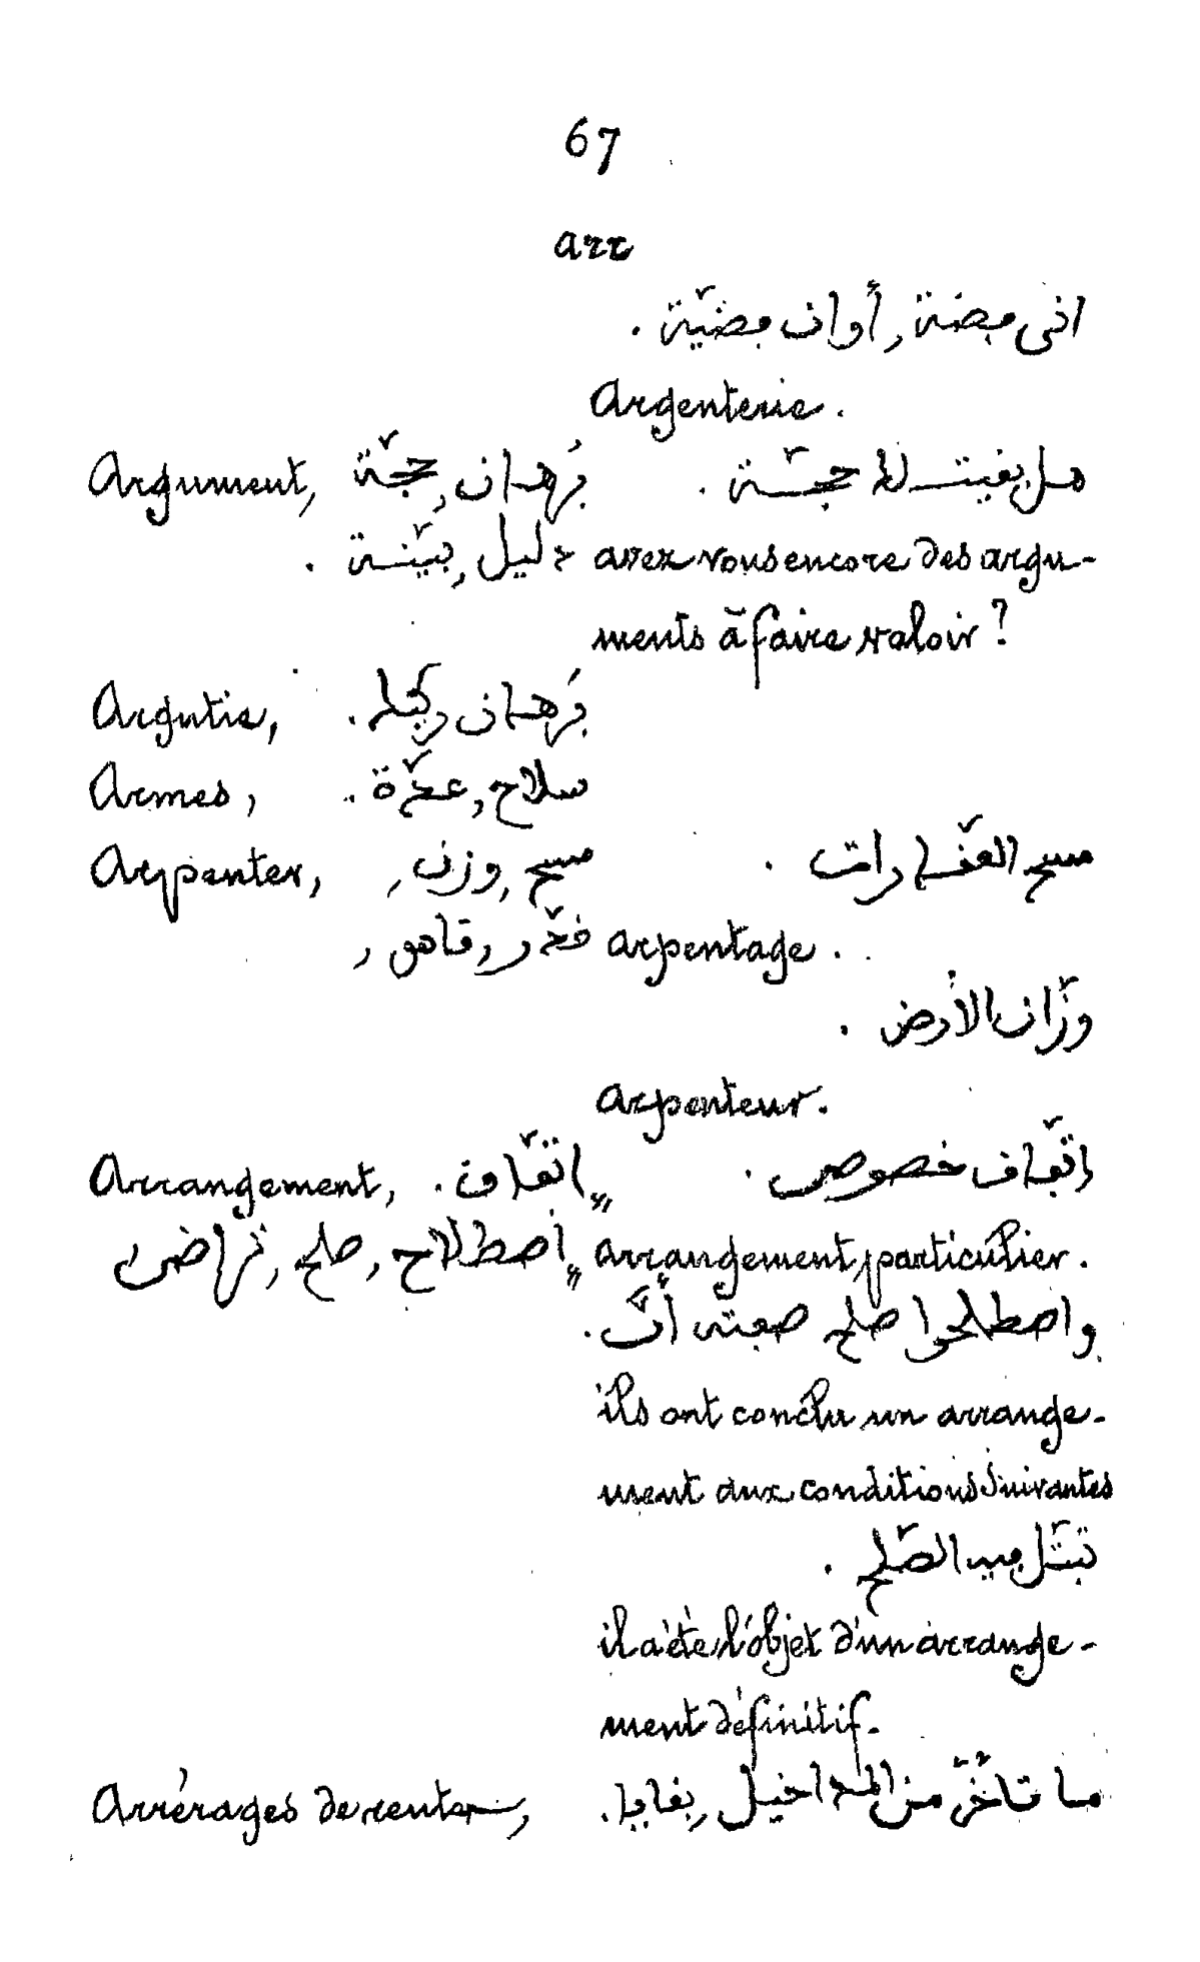 67
arr
انى مضة, أوان مضيّة .
Argenterie.
Argument, حجّة, بُرهان هل بقيت لك حجّة .
دليل, بيّنة . avez vous encore des argu-
ments à faire valoir?
Argutie, بُرهان ركيك.
Armes, سلاح, عدّة.
Arpenter, مسح, وزن, مسح العقّارات .
قدّر, قاس, arpentage.
وزّان الأرض .
arpenteur.
Arrangement, اتّفاق. اتّفاق خصوصى .
اصطلاح, صلح, تراضى, arrangement particulier.
واصطلحوا صلح صفته أنّ.
ils ont conclu un arrange-
ment aux conditions suivantes
تبتّل فيه الصّلح .
il a été l'objet d'un arrange-
ment définitif.
Arrérages de rentes, ما تأخّر من المداخيل, بقايا.